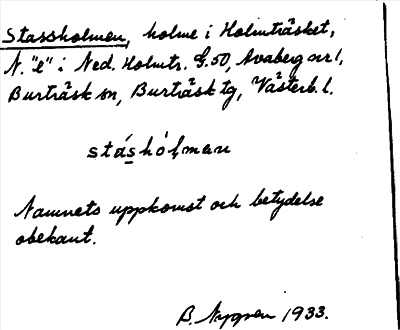 Stassholmen, holme i Holmträsket,
N. "l" i Ned. Holmtr. S.50, Avaberg nr 1,
Burträsk sn, Burträsk tg, Västerb. l.
stáshólman
Namnets uppkomst och betydelse
obekant.
B. Nygren 1933.